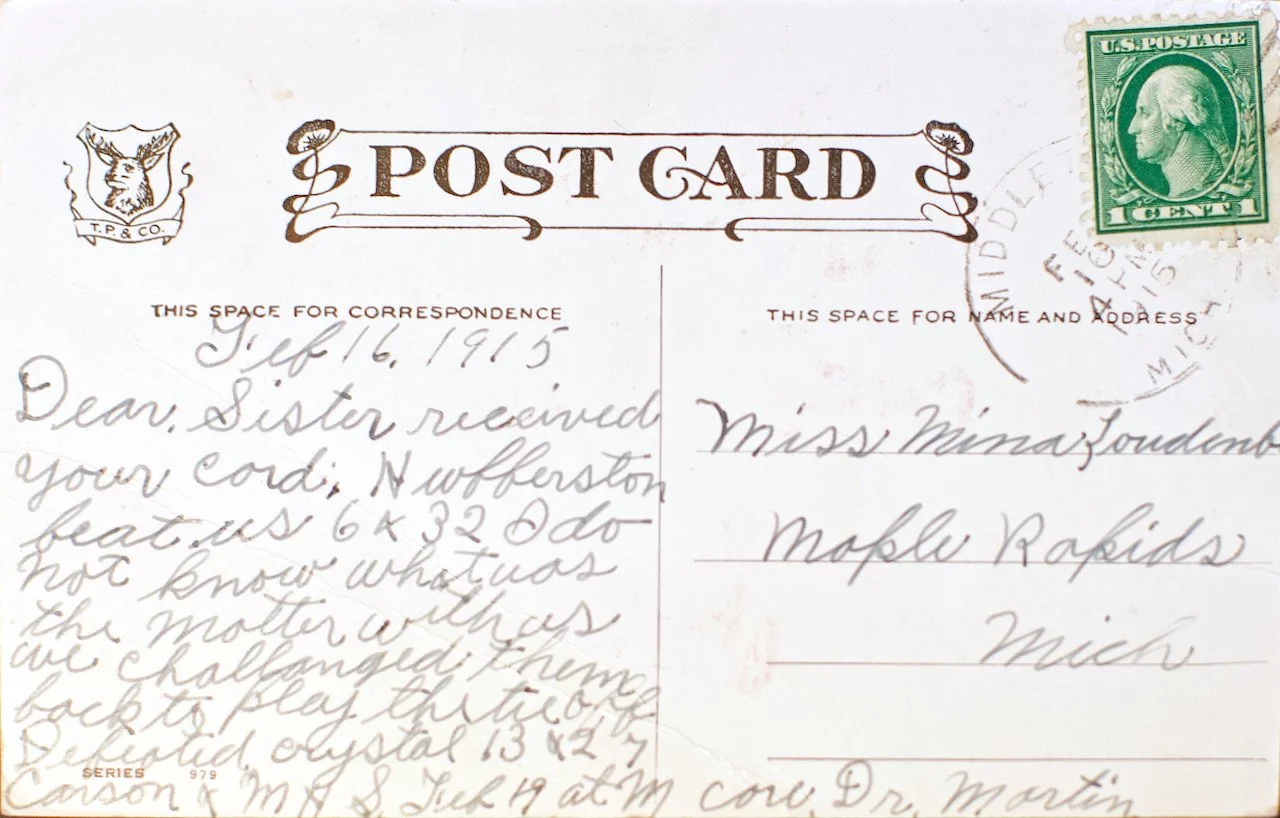 U.S. POSTAGE
1 CENT 1
POST CARD
T. P. & CO.
MIDDLE
FE
16
4 PM
1915
MICH
THIS SPACE FOR CORRESPONDENCE
THIS SPACE FOR NAME AND ADDRESS
Feb 16, 1915
Dear, Sister received
your cord;
beat us 6 & 32 I do
not know what was
the motter with us
we challanged them
back to play the tie off
Defeated crystal 13 & 27
Carson & M H S Feb 19 at M core Dr. Martin
SERIES 979
Miss Mina Loudenb
Maple Rapids
Mich